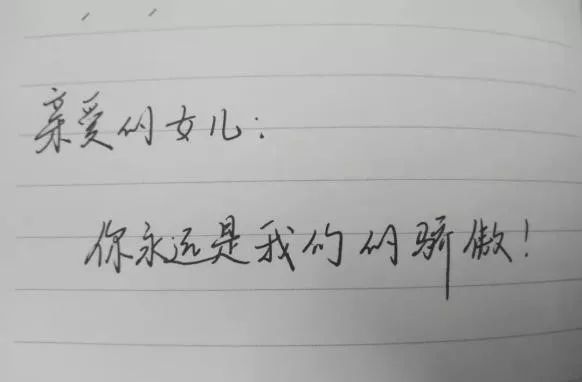 亲爱的女儿：
你永远是我们的骄傲！